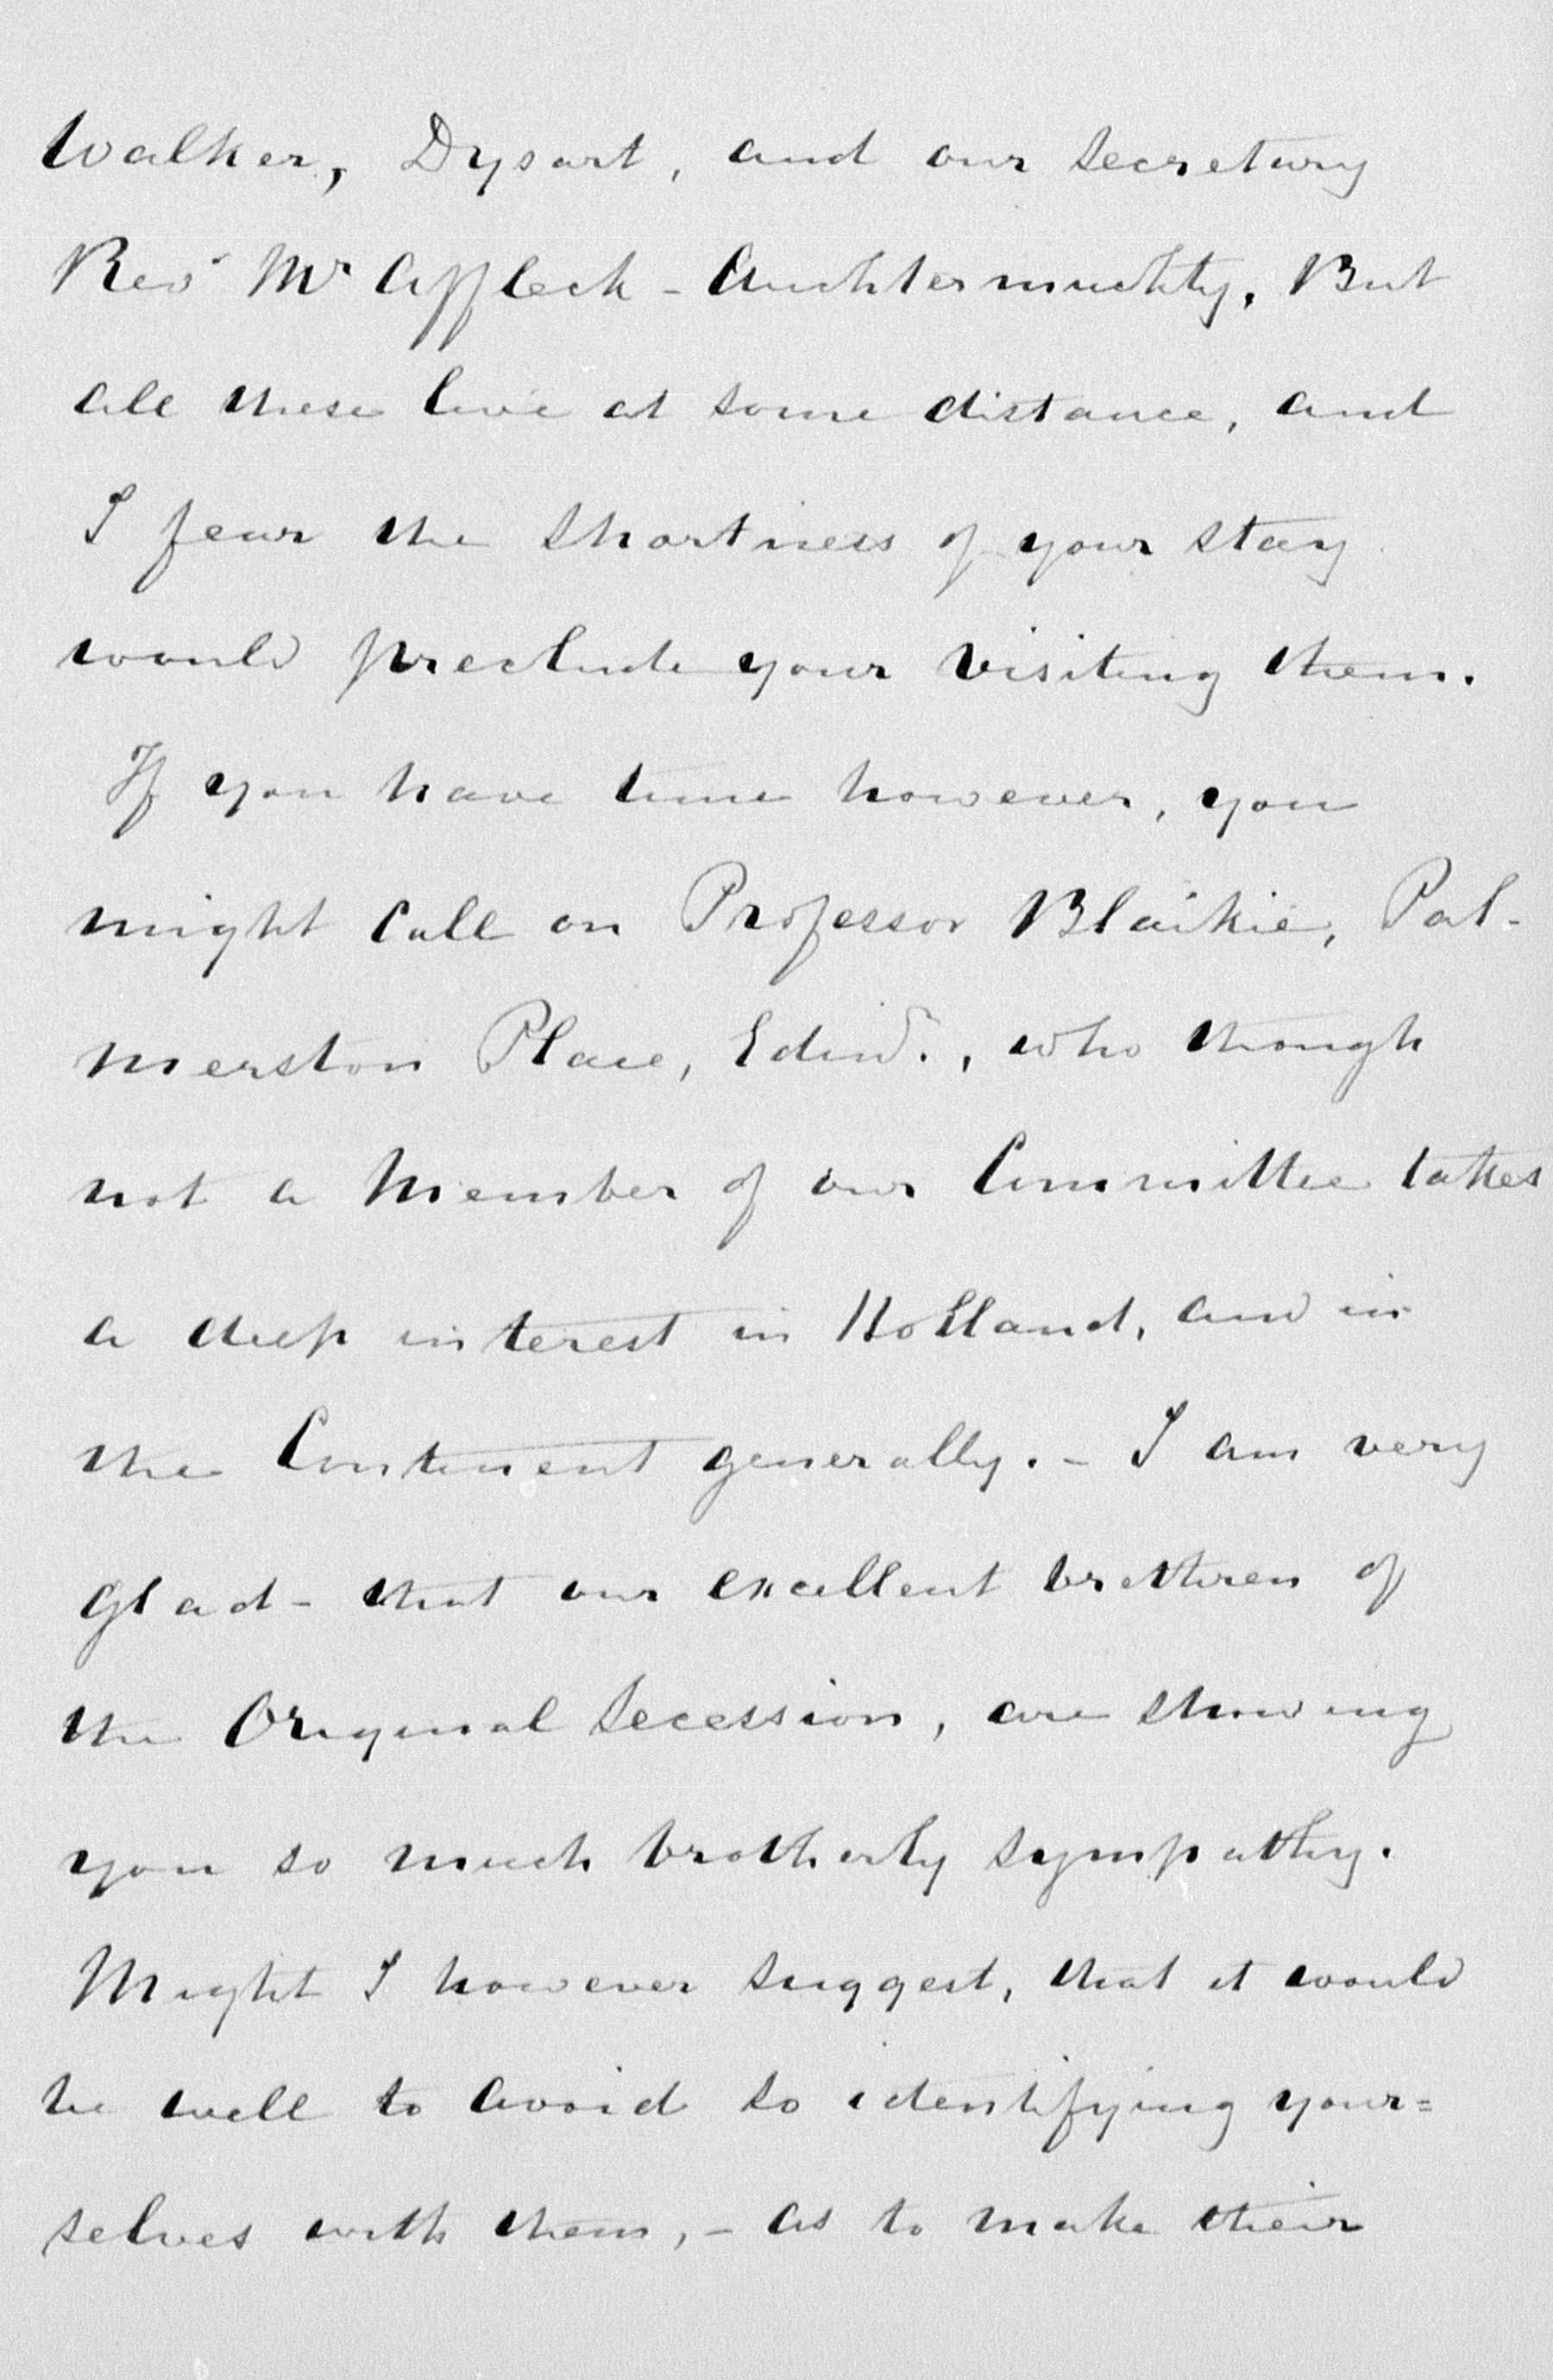 Walker, Dysart, and our Secretary
Revd Mr Affleck - Auchtermuchty. But
all these live at some distance, and
I fear the shortness of your stay
would preclude your visiting them.
If you have time however, you
might call on Professor Blaikie, Pal-
merston Place, Edinr., who though
not a Member of our Committee takes
a deep interest in Holland, and in
the Continent generally. - I am very
glad - that our excellent brethren of
the Original Secession, are showing
you so much brotherly sympathy.
Might I however suggest, that it would
be well to avoid so identifying your=
selves with them, - as to make their